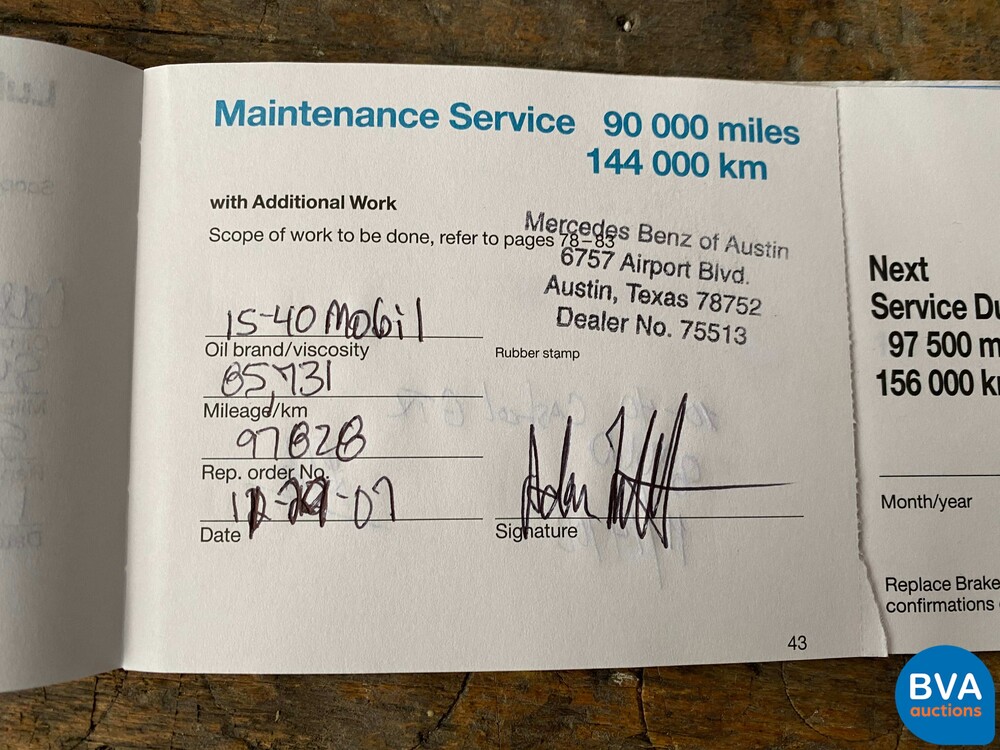 Maintenance Service 90 000 miles
144 000 km
with Additional Work
Scope of work to be done, refer to pages 78–83
Mercedes Benz of Austin
6757 Airport Blvd.
Austin, Texas 78752
Dealer No. 75513
Rubber stamp
15-40 Mobil
Oil brand/viscosity
85,731
Mileage/km
97828
Rep. order No.
Date
Signature
43
Next
Service Du
97 500 m
156 000 k
Month/year
Replace Brake
confirmations
BVA
auctions